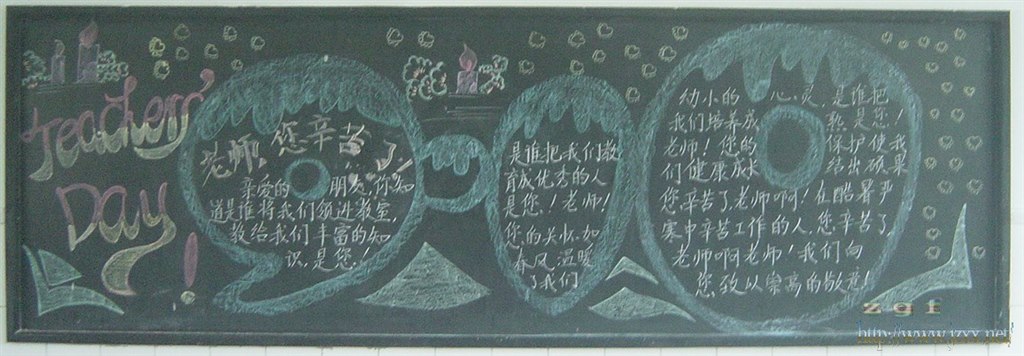 Teachers'
Day!
老师,您辛苦了
亲爱的朋友,你知
道是谁将我们领进教室,
教给我们丰富的知
识,是您!
是谁把我们教
育成优秀的人
是您!老师!
您的关怀如
春风温暖
了我们
幼小的心灵,是谁把
我们培养成熟是您!
老师!您的保护使我
们健康成长结出硕果
您辛苦了老师啊!在酷暑严
寒中辛苦工作的人,您辛苦了,
老师啊老师!我们向
您致以崇高的敬意!
zgf
http://www.jzxx.net